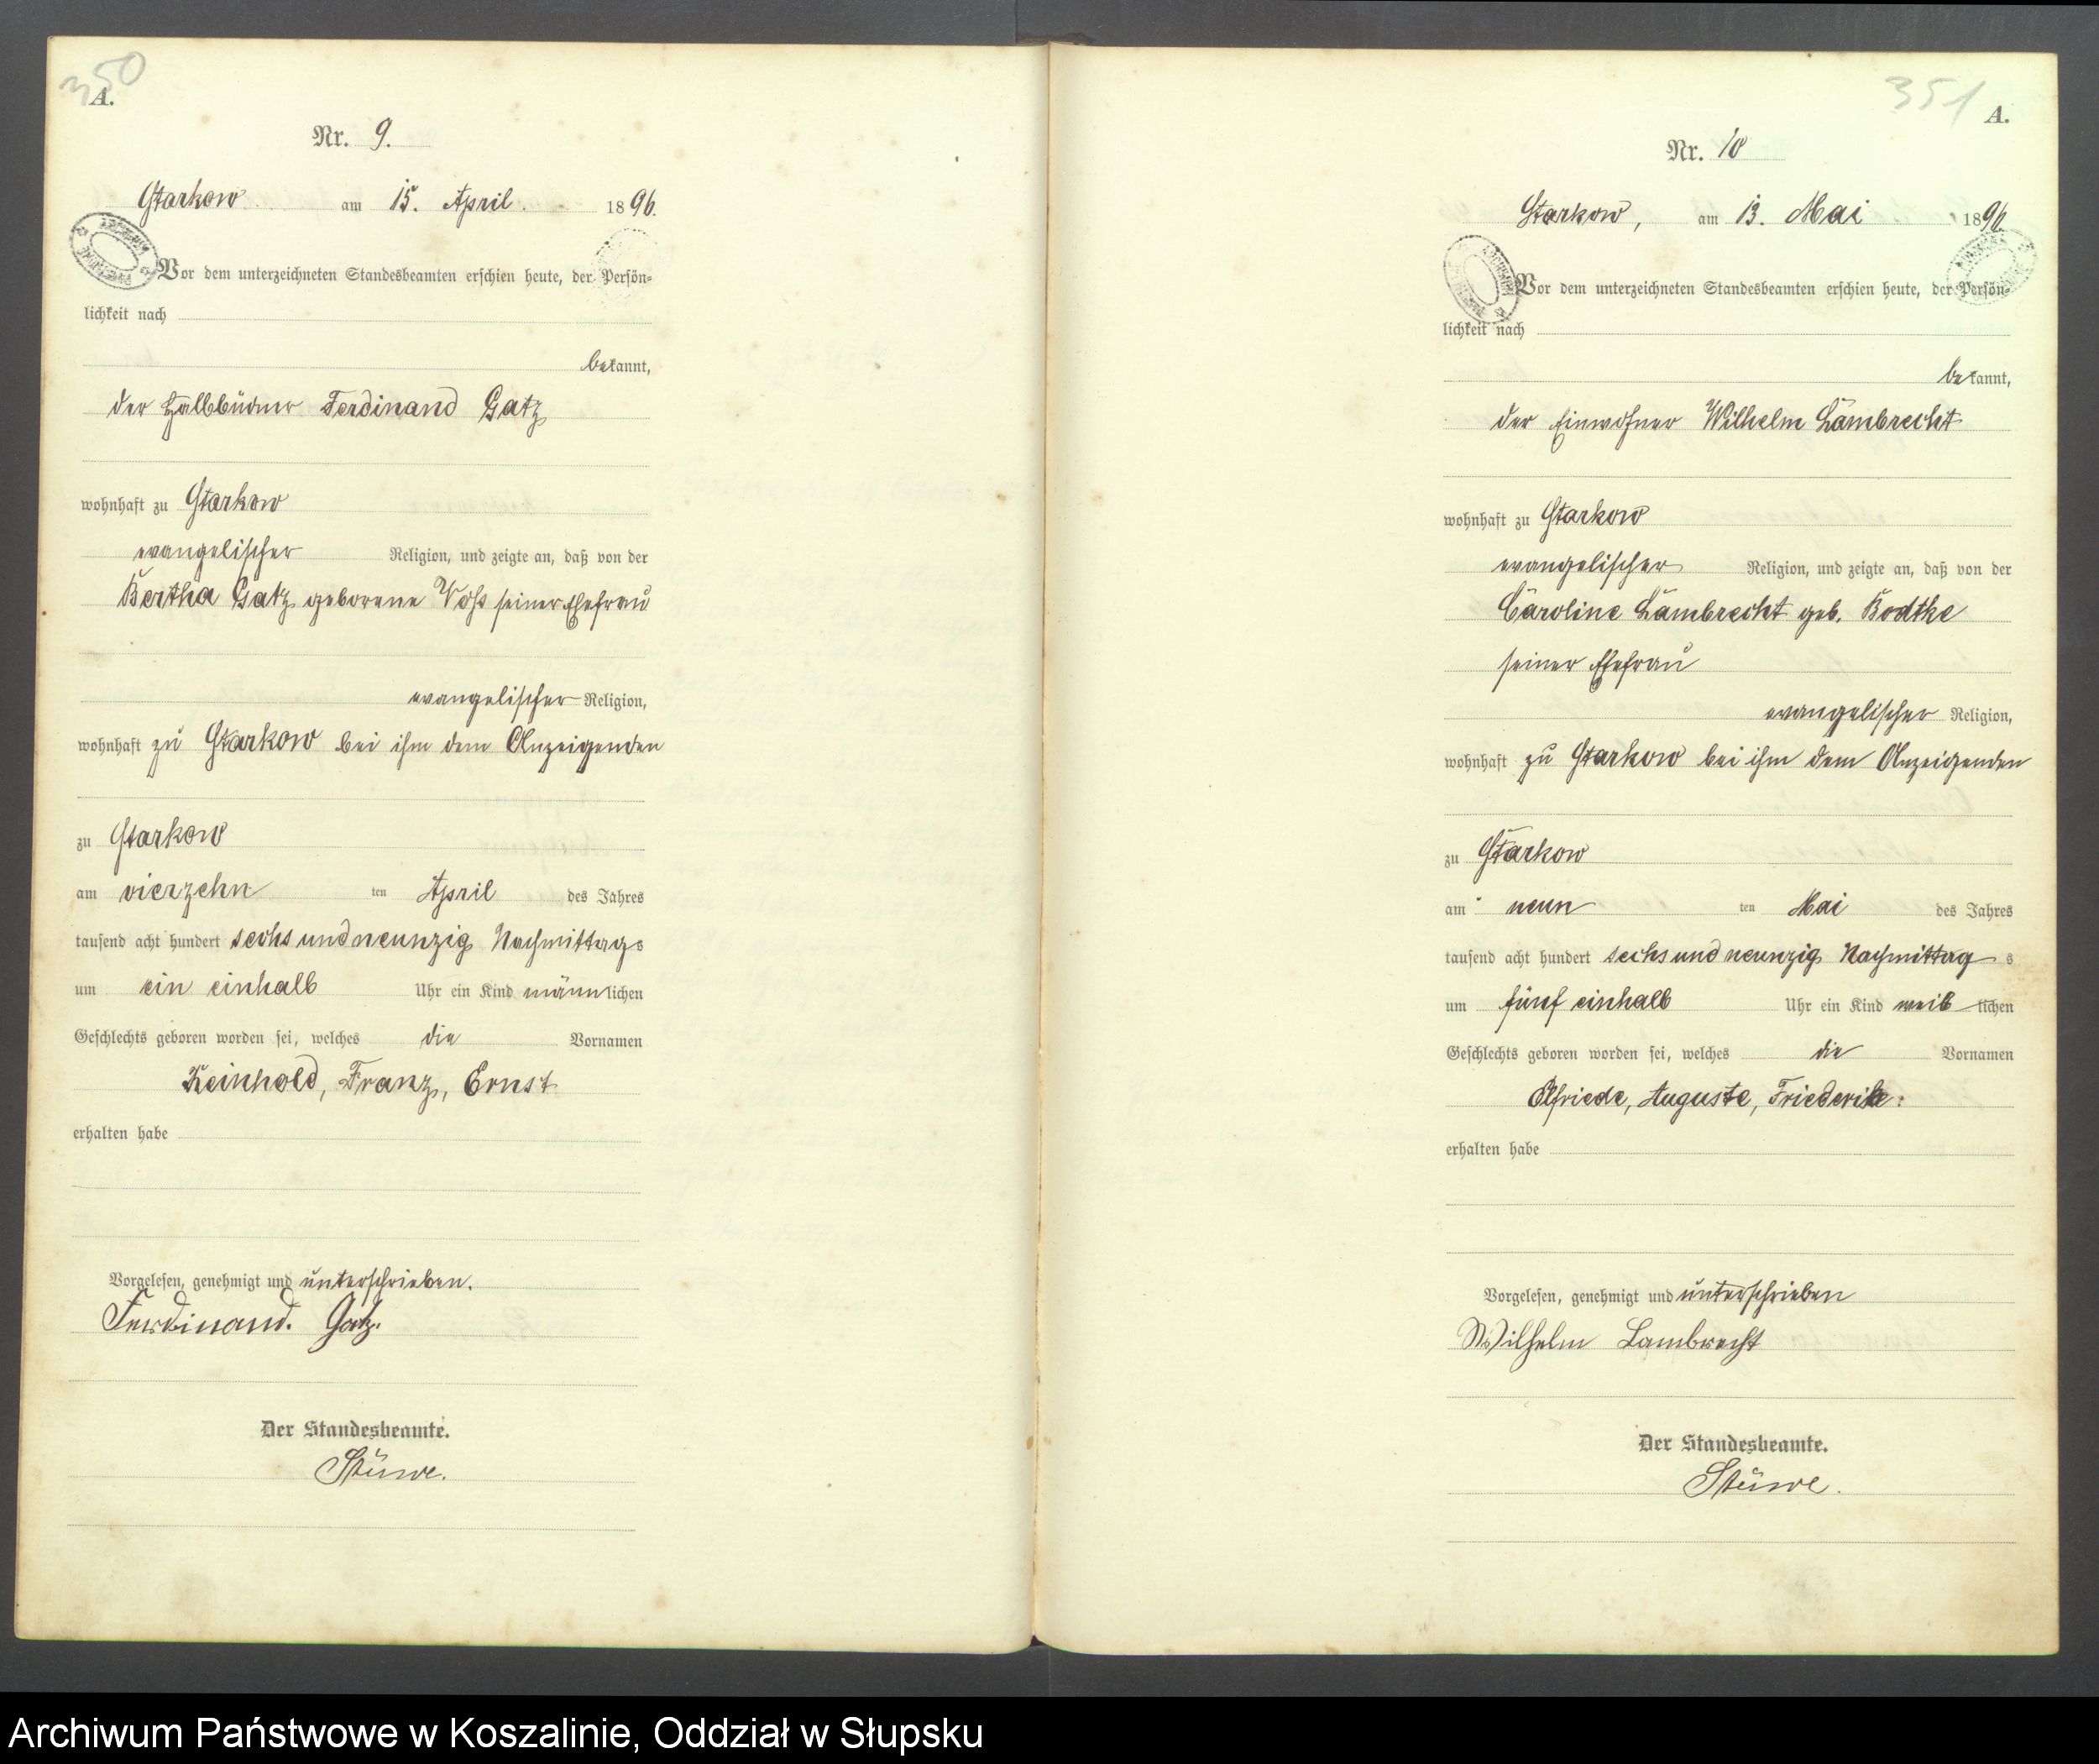 350
A.
Nr. 9.
Starkow am 15. April 1896.
Vor dem unterzeichneten Standesbeamten erschien heute, der Persön-
lichkeit nach
bekannt,
der Halbbüdner Ferdinand Gatz
wohnhaft zu Starkow
evangelischer Religion, und zeigte an, daß von der
Bertha Gatz geborene Voß seiner Ehefrau
evangelischer Religion,
wohnhaft zu Starkow bei ihm dem Anzeigenden
zu Starkow
am vierzehn ten April des Jahres
tausend acht hundert sechs und neunzig Nachmittags
um ein einhalb Uhr ein Kind männlichen
Geschlechts geboren worden sei, welches die Vornamen
Reinhold, Franz, Ernst
erhalten habe
Vorgelesen, genehmigt und unterschrieben.
Ferdinand. Gatz.
Der Standesbeamte.
Stüwe.
351
A.
Nr. 10
Starkow, am 13. Mai 1896.
Vor dem unterzeichneten Standesbeamten erschien heute, der Persön-
lichkeit nach
bekannt,
der Einwohner Wilhelm Lambrecht
wohnhaft zu Starkow
evangelischer Religion, und zeigte an, daß von der
Caroline Lambrecht geb. Kodtke
seiner Ehefrau
evangelischer Religion,
wohnhaft zu Starkow bei ihm dem Anzeigenden
zu Starkow
am neun ten Mai des Jahres
tausend acht hundert sechs und neunzig Nachmittags
um fünf einhalb Uhr ein Kind weiblichen
Geschlechts geboren worden sei, welches die Vornamen
Elfriede, Auguste, Friederike.
erhalten habe
Vorgelesen, genehmigt und unterschrieben
Wilhelm Lambrecht
Der Standesbeamte.
Stüwe.
Archiwum Państwowe w Koszalinie, Oddział w Słupsku